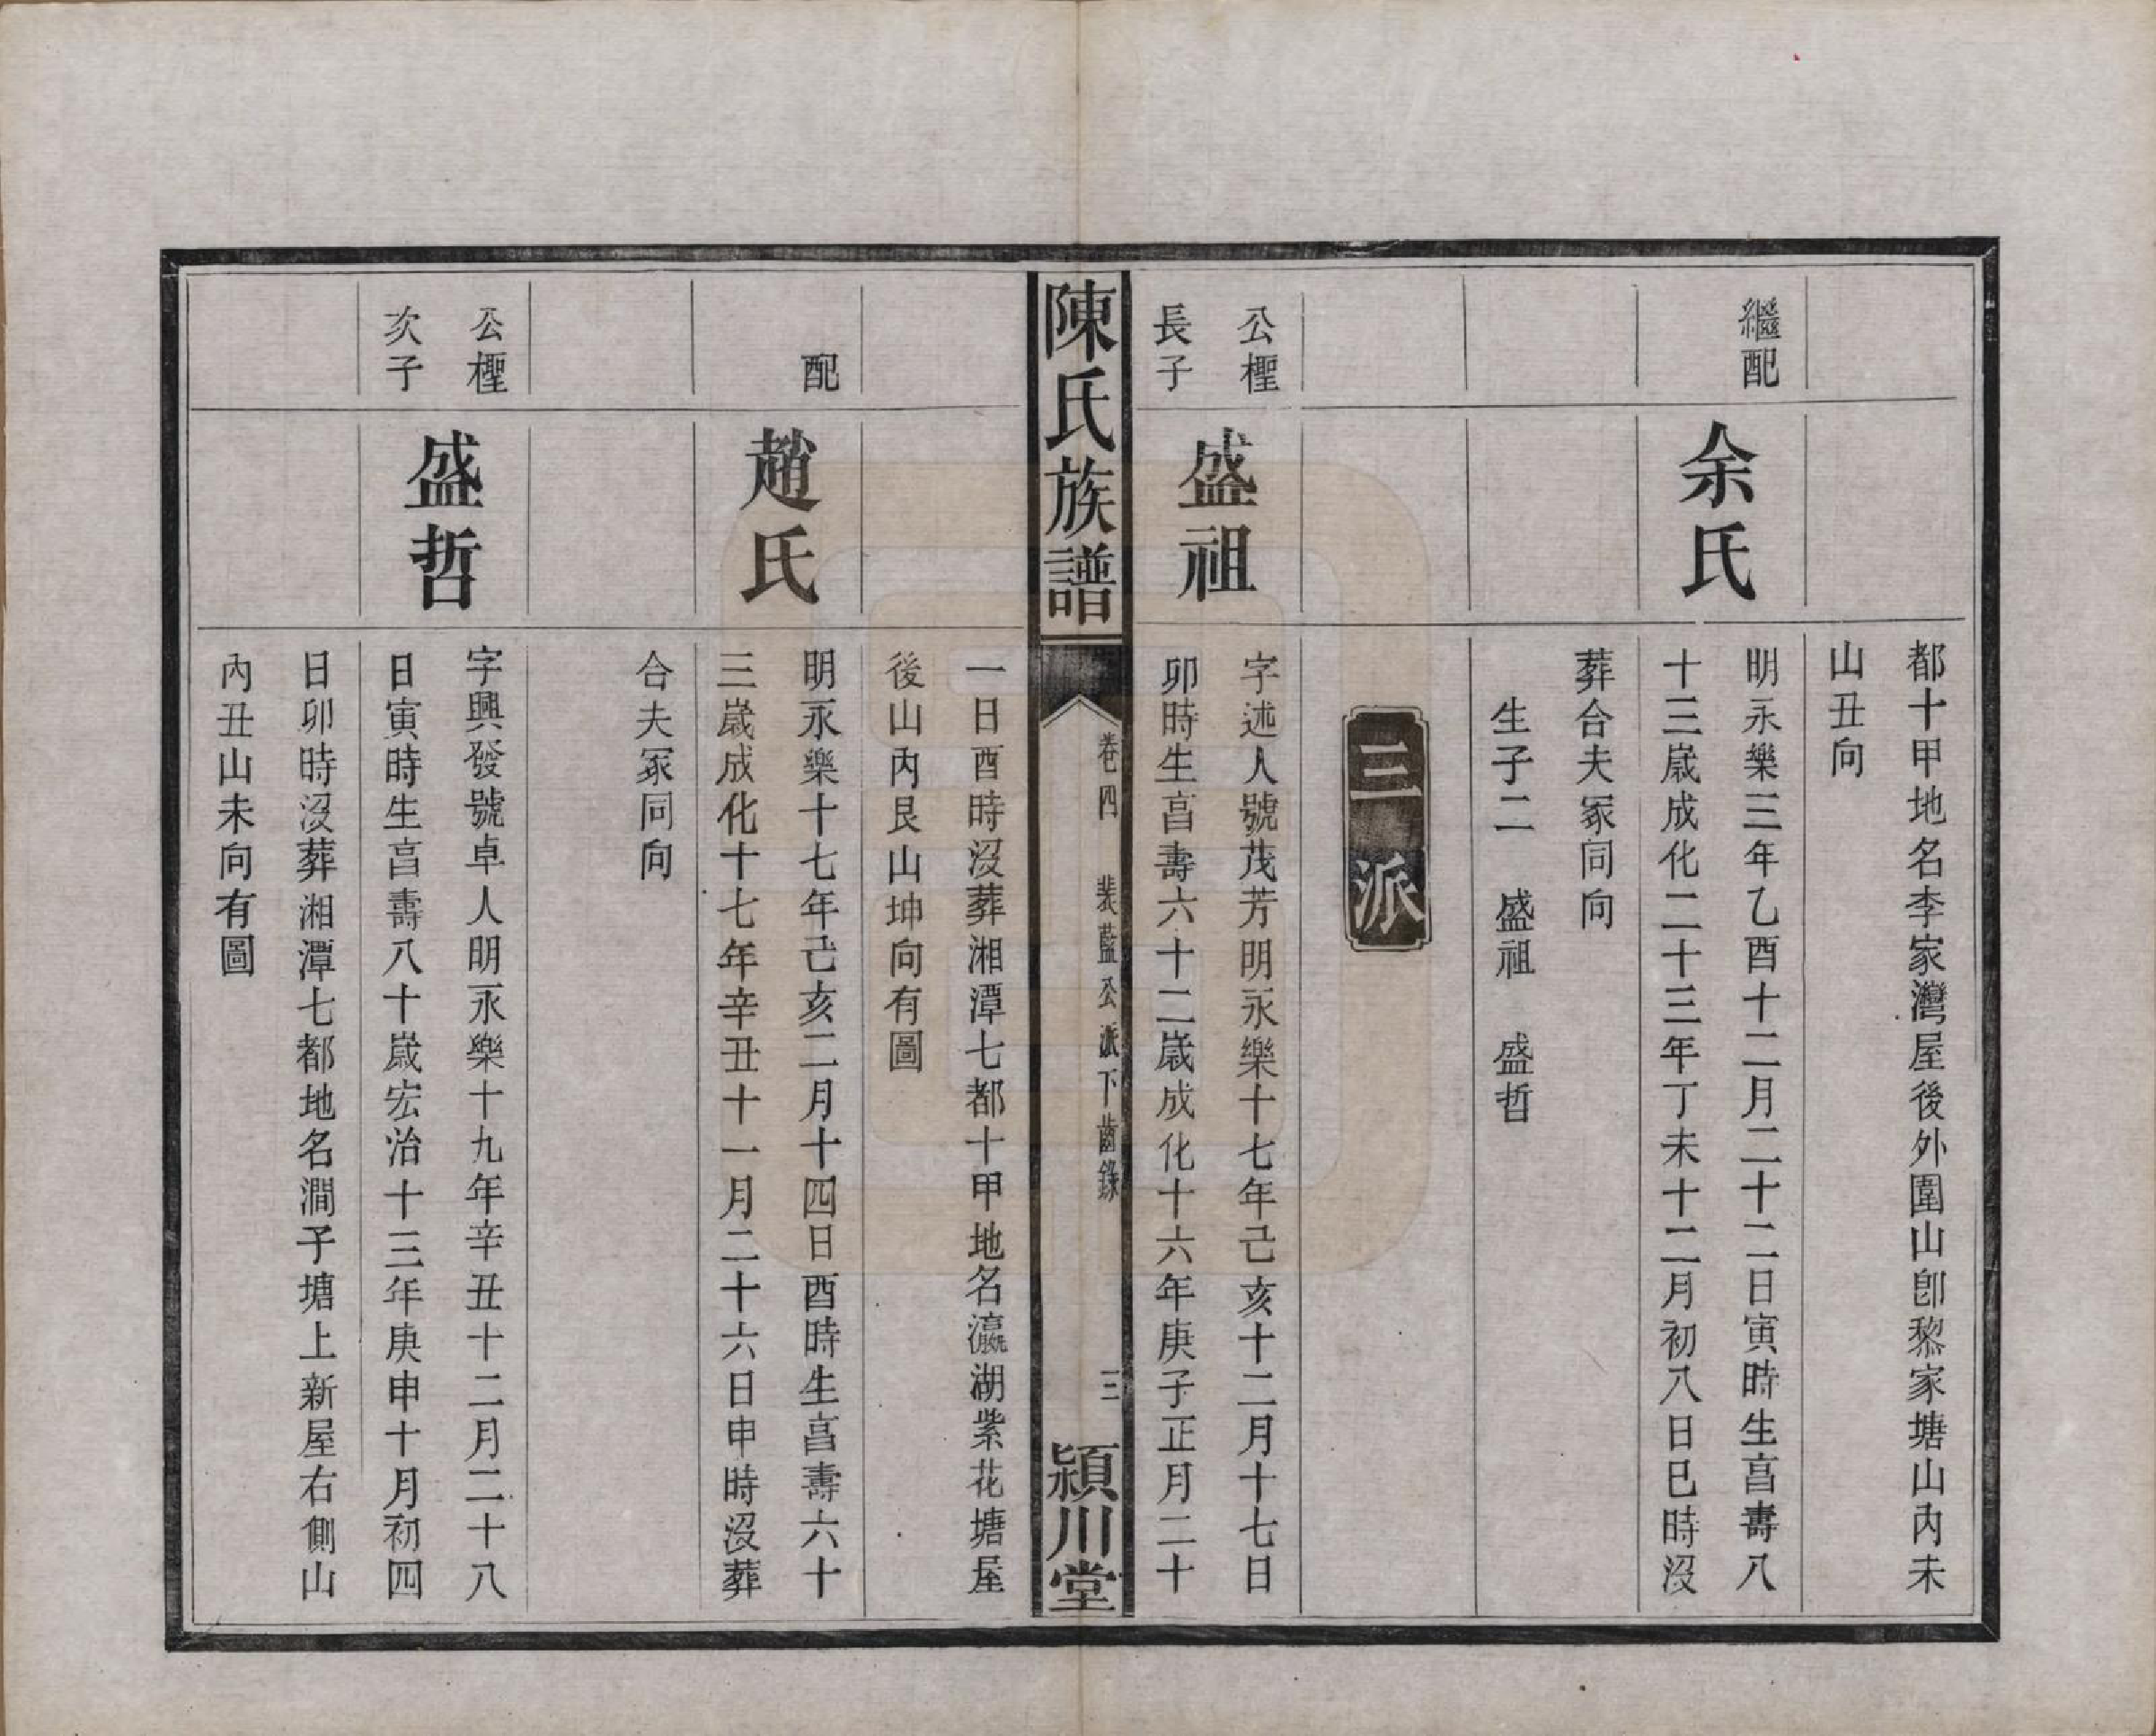 都十甲地名李家灣屋後外圍山卽黎家塘山內未
山丑向
繼配
余氏
明永樂三年乙酉十二月二十二日寅時生亯壽八
十三歲成化二十三年丁未十二月初八日巳時沒
葬合夫冢同向
生子二　盛祖　盛哲
三派
公𣚦
長子
盛祖
字述人號茂芳明永樂十七年己亥十二月十七日
卯時生亯壽六十二歲成化十六年庚子正月二十
陳氏族譜
卷四　裴藍公派下齒錄
三
潁川堂
一日酉時沒葬湘潭七都十甲地名瀛湖紫花塘屋
後山內艮山坤向有圖
配
趙氏
明永樂十七年己亥二月十四日酉時生亯壽六十
三歲成化十七年辛丑十一月二十六日申時沒葬
合夫冢同向
公𣚦
次子
盛哲
字興發號卓人明永樂十九年辛丑十二月二十八
日寅時生亯壽八十歲宏治十三年庚申十月初四
日卯時沒葬湘潭七都地名澗子塘上新屋右側山
內丑山未向有圖